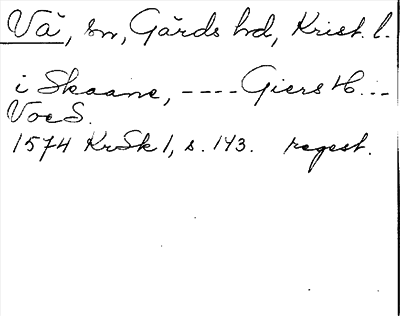 Vä, sn, Gärds hd, Krist. l.
i Skaane, ---- Giers H...
Voe S.
1574 KrSk 1, s. 143. regest.